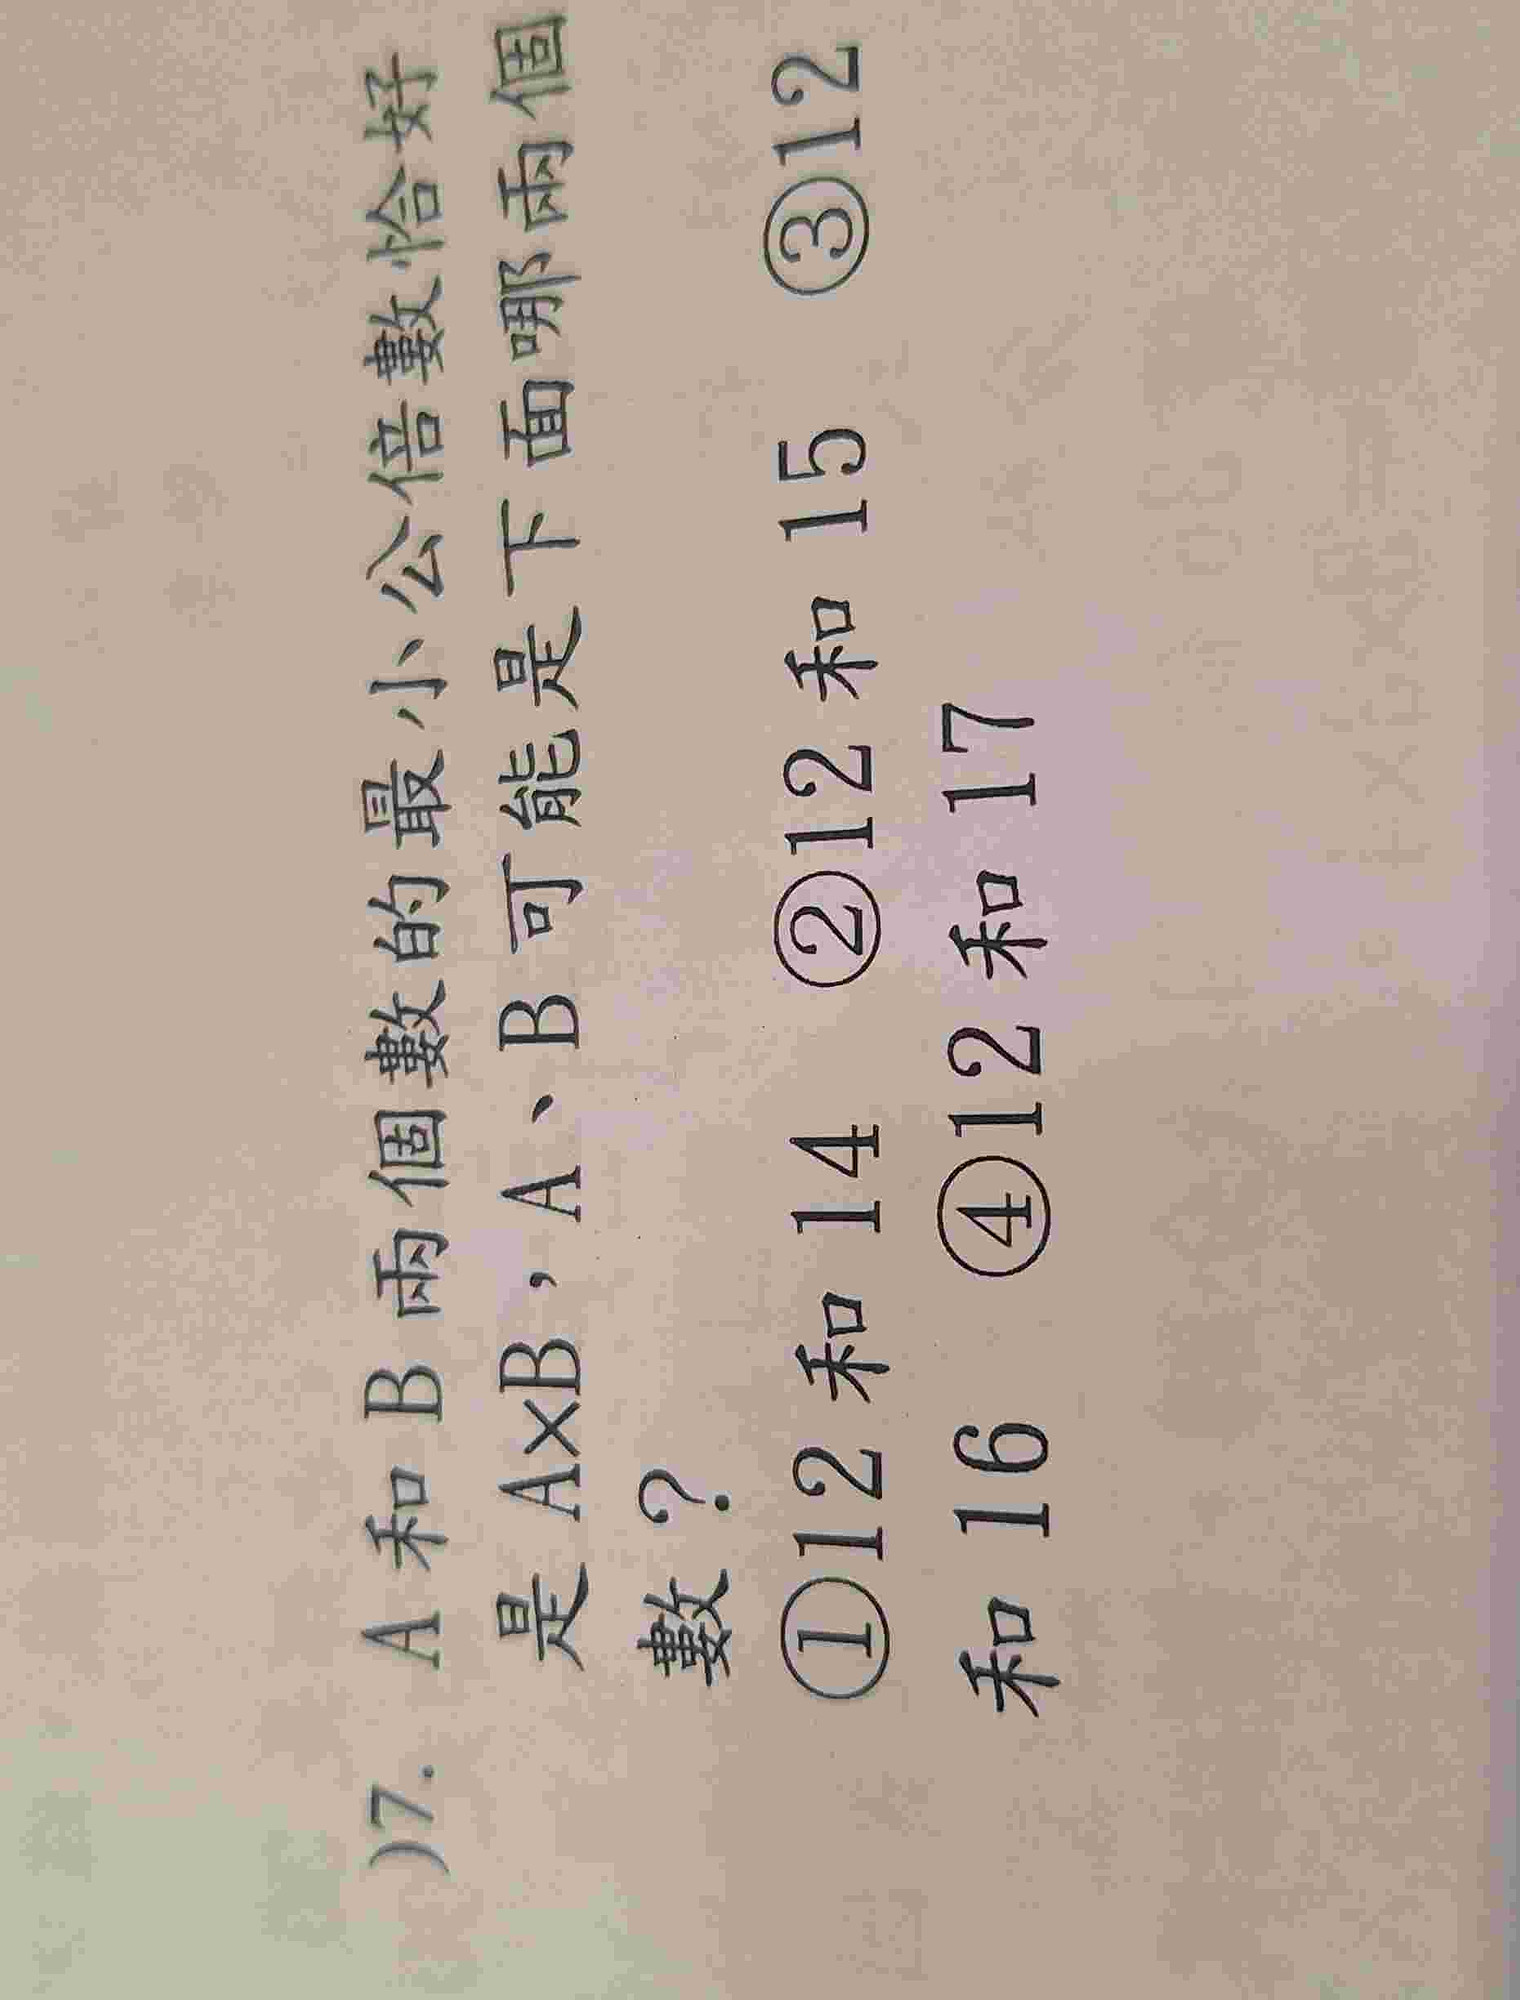 )7. A 和 B 兩個數的最小公倍數恰好
是 A×B，A、B 可能是下面哪兩個
數？
①12 和 14 ②12 和 15 ③12
和 16 ④12 和 17